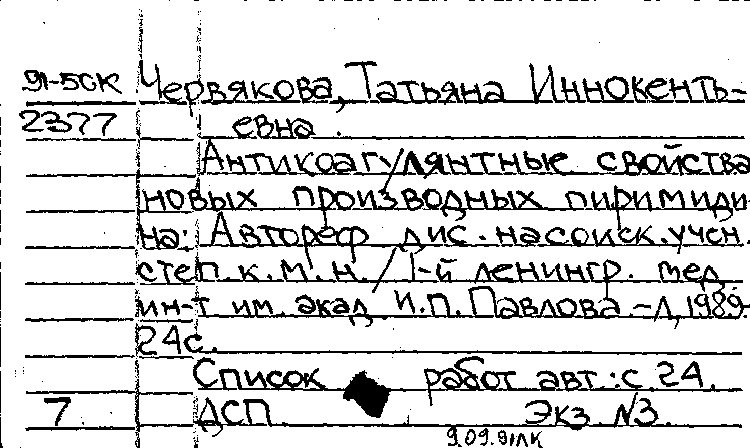 91-5СК Червякова, Татьяна Иннокенть-
2377 евна.
Антикоагулянтные свойства
новых производных пиримиди-
на: Автореф дис. на соиск. учен.
степ к.м.н. / 1-й ленингр. мед
ин-т им. акад И.П. Павлова – Л, 1989.
24с.
Список работ авт.: с 24.
7 ДСП. Экз №3.
9.09.91ЛК